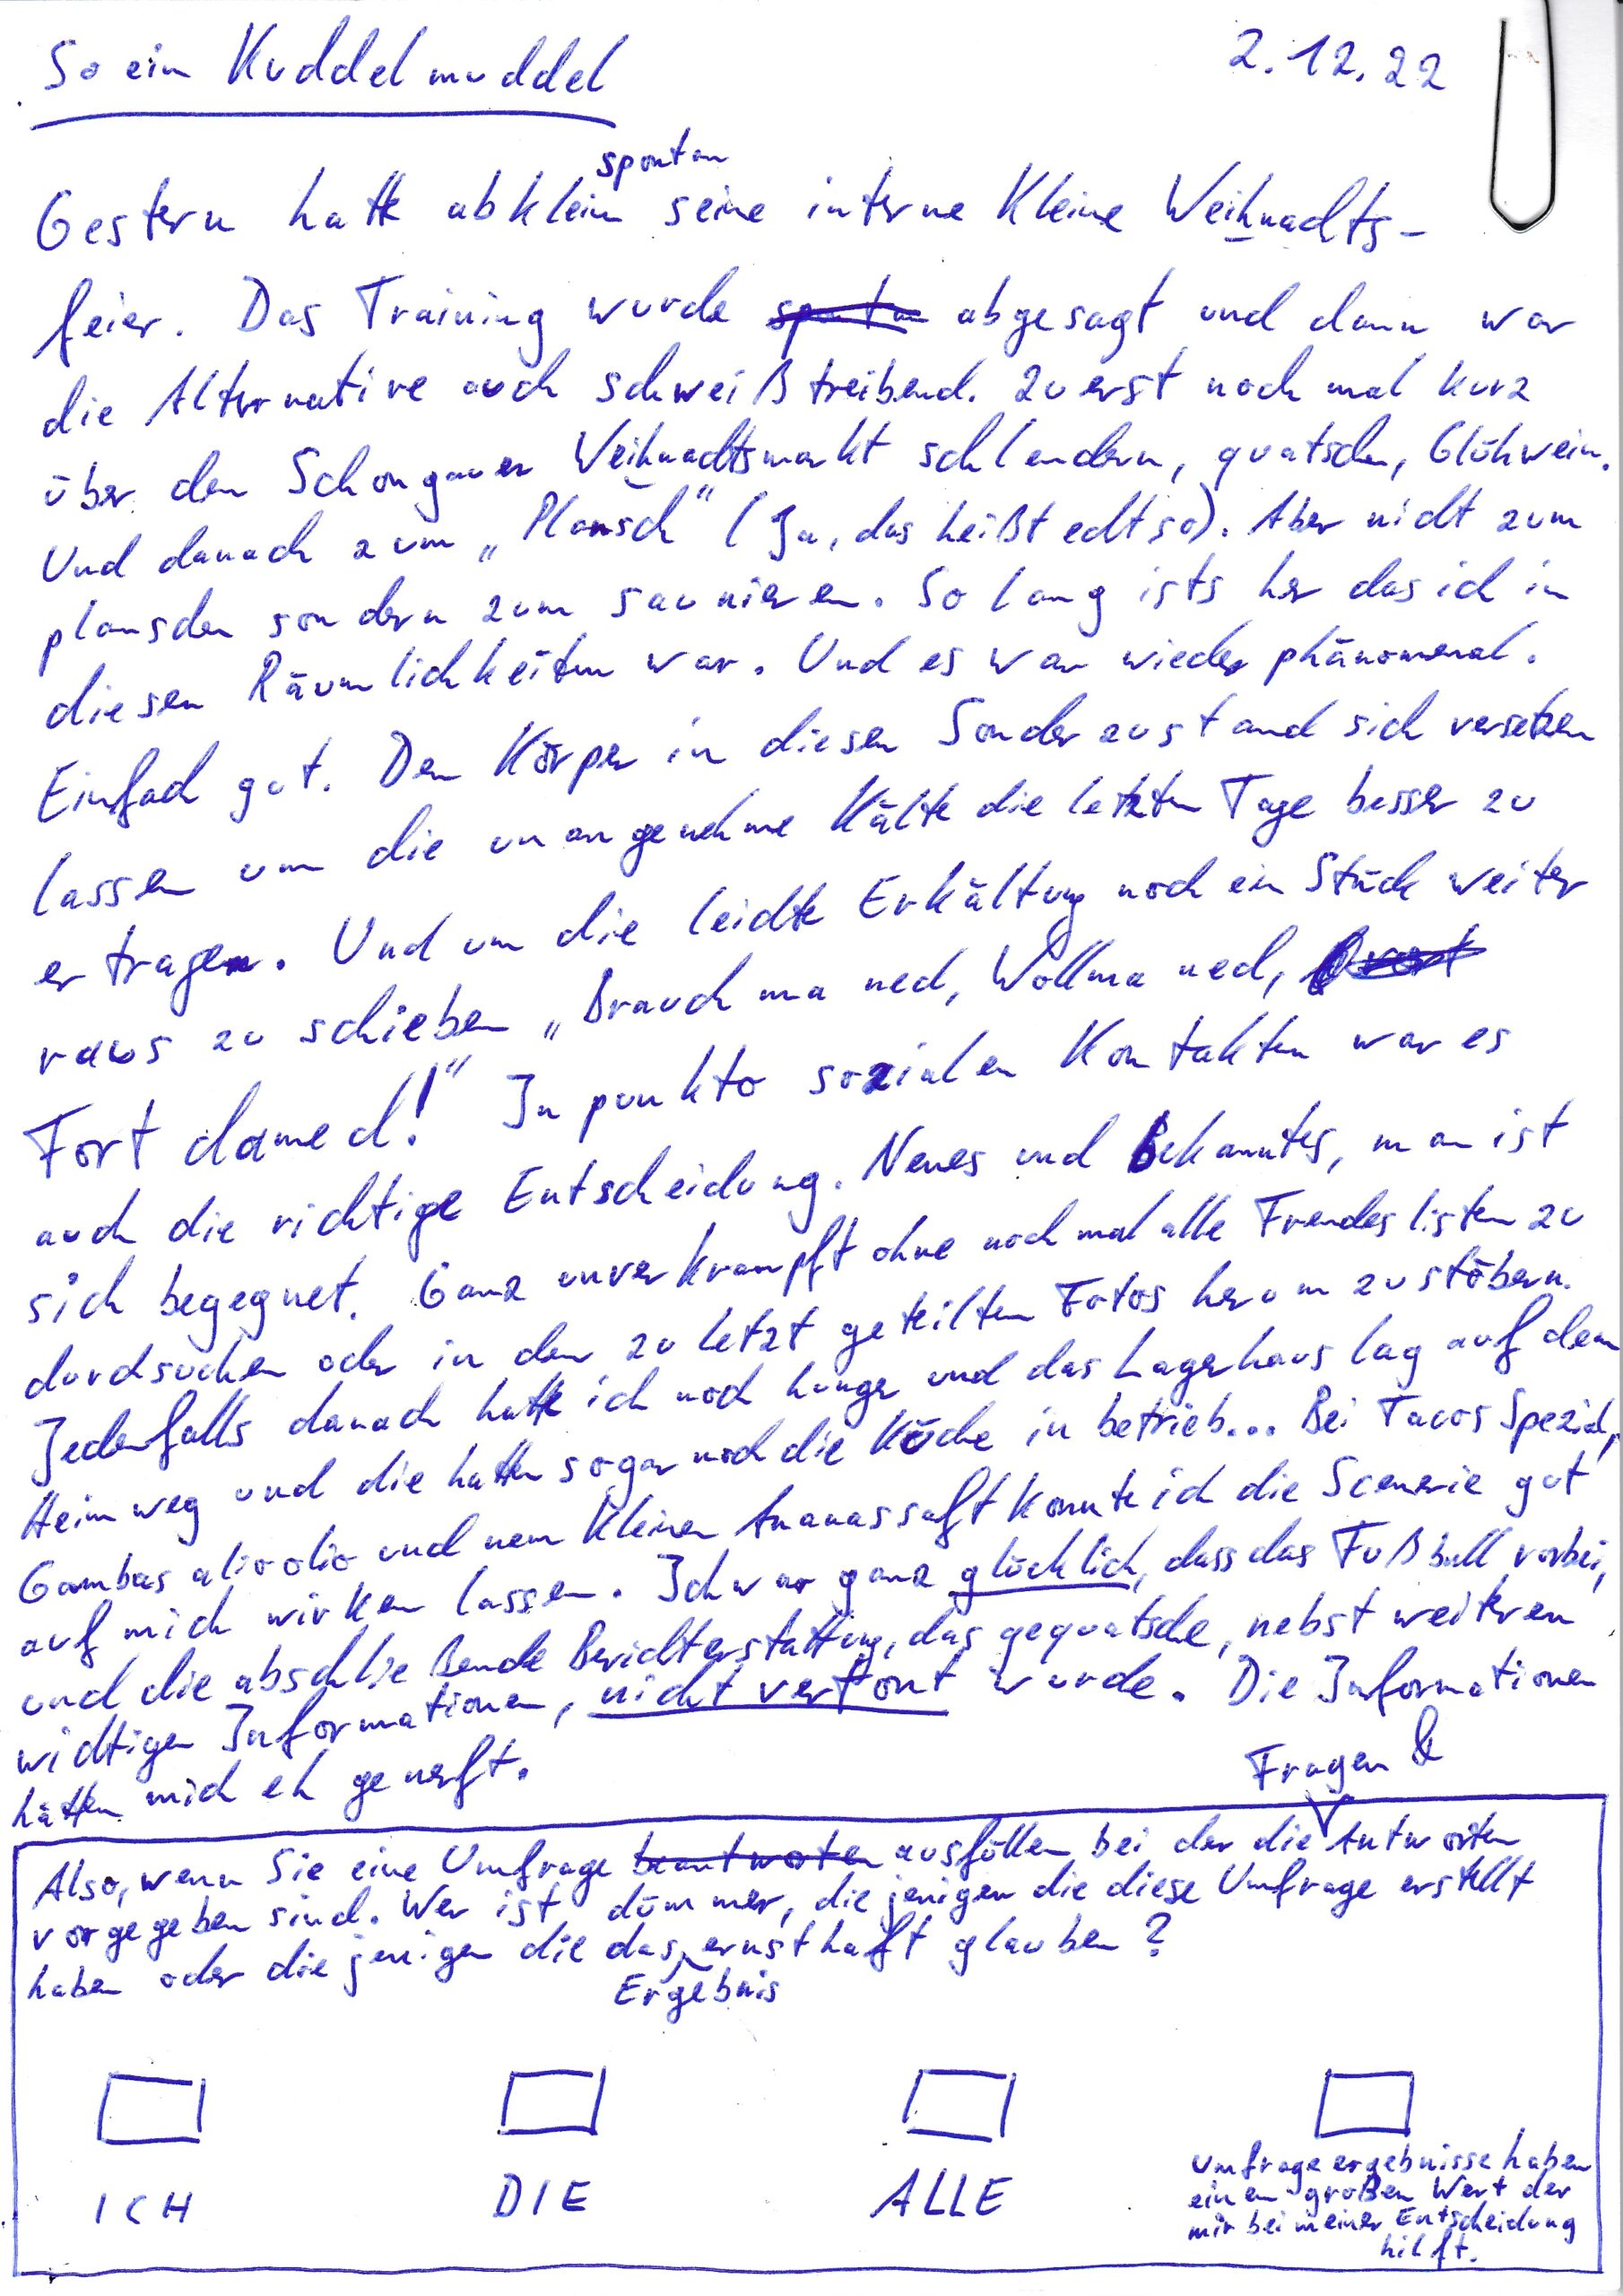 So ein Kuddelmuddel
2.12.22
spontan
Gestern hatte abklein seine interne Kleine Weihnachts-
feier. Das Training wurde spontan abgesagt und dann war
die Alternative auch schweißtreibend. Zuerst noch mal kurz
über den Schongauer Weihnachtsmarkt schlendern, quatschen, Glühwein.
Und danach zum „Plansch" (Ja, das heißt echt so). Aber nicht zum
planschen sondern zum saunieren. So lang ists her das ich in
diesen Räumlichkeiten war. Und es war wieder phänomenal.
Einfach gut. Den Körper in diesen Sonderzustand sich versetzen
lassen um die unangenehme Kälte die letzten Tage besser zu
ertragen. Und um die leichte Erkältung noch ein Stück weiter
raus zu schieben „Brauch ma ned, Wollma ned,
Fort damed!" In punkto sozialen Kontakten war es
auch die richtige Entscheidung. Neues und Bekanntes, man ist
sich begegnet. Ganz unverkrampft ohne noch mal alle Freundeslisten zu
durchsuchen oder in den zuletzt geteilten Fotos herum zu stöbern.
Jedenfalls danach hatte ich noch hunger und das Lagerhaus lag auf dem
Heimweg und die hatten sogar noch die Küche in betrieb... Bei Tacos Spezial,
Gambas alio olio und nem kleinen Ananassaft konnte ich die Scenerie gut
auf mich wirken lassen. Ich war ganz glücklich, dass das Fußball vorbei,
und die abschließende Berichterstattung, das gequatsche, nebst weiteren
wichtigen Informationen, nicht vertont wurde. Die Informationen
hätten mich eh generft.
Fragen &
Also, wenn Sie eine Umfrage beantworten ausfüllen bei der die Antworten
vorgegeben sind. Wer ist dümmer, die jenigen die diese Umfrage erstellt
haben oder die jenigen die das ernsthaft glauben?
Ergebnis
ICH DIE ALLE
Umfrageergebnisse haben
einen großen Wert der
mir bei meiner Entscheidung
hilft.